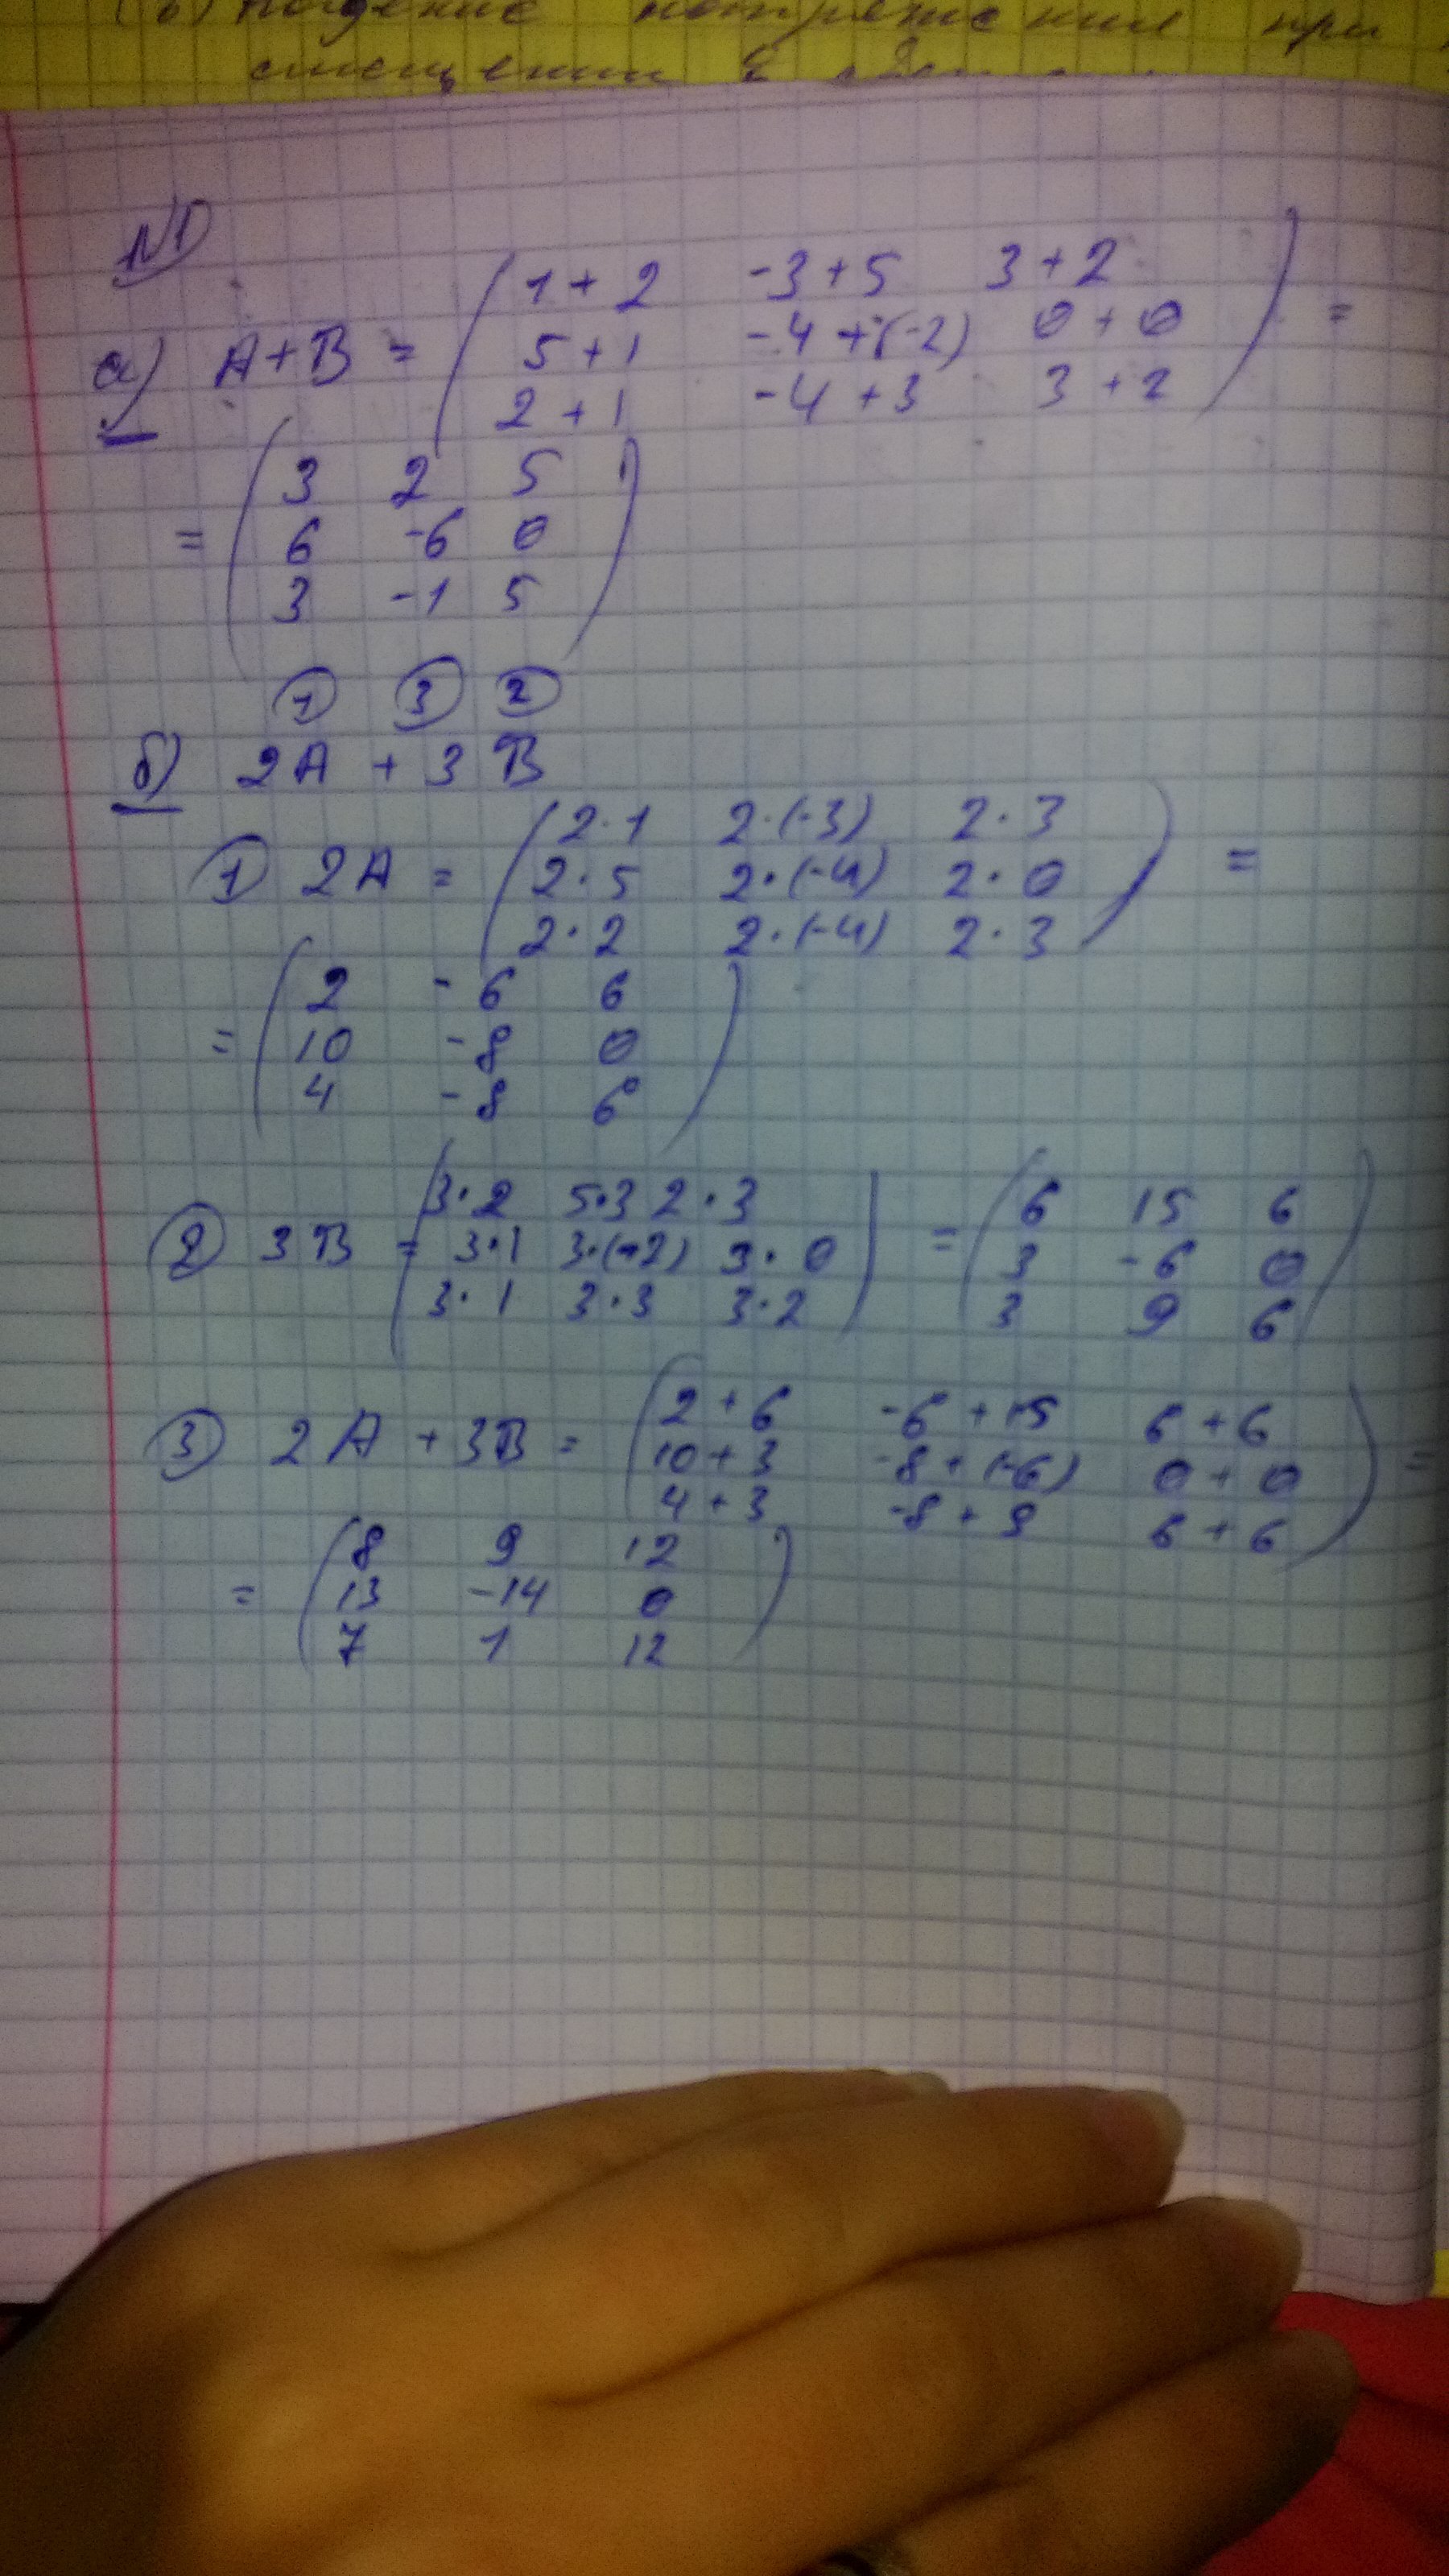 (б) падение напряжения при
смещении в
№1
а) A+B = ( 1+2 -3+5 3+2
5+1 -4+(-2) 0+0
2+1 -4+3 3+2 ) =
= ( 3 2 5
6 -6 0
3 -1 5 )
1 3 2
б) 2A + 3 B
1 2A = ( 2·1 2·(-3) 2·3
2·5 2·(-4) 2·0
2·2 2·(-4) 2·3 ) =
= ( 2 -6 6
10 -8 0
4 -8 6 )
2 3B = ( 3·2 5·3 2·3
3·1 3·(-2) 3·0
3·1 3·3 3·2 ) = ( 6 15 6
3 -6 0
3 9 6 )
3 2A + 3B = ( 2+6 -6+15 6+6
10+3 -8+(-6) 0+0
4+3 -8+9 6+6 ) =
= ( 8 9 12
13 -14 0
7 1 12 )